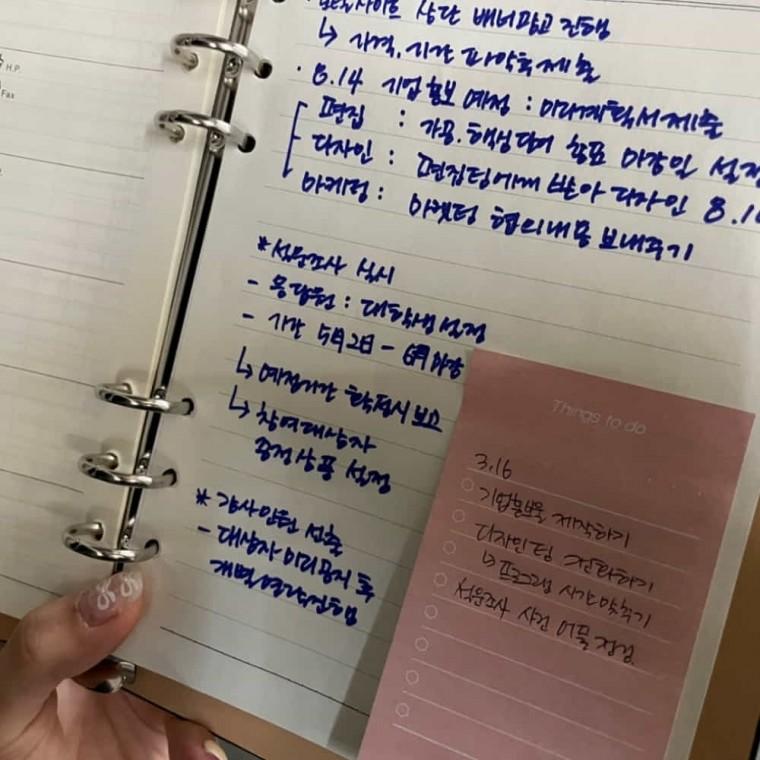 H.P.
Fax
사이트 상단 배너광고 진행
↳ 가격, 시간 파악후 제출
· 8.14 기업홍보 예정 : 미리계획서제출
편집 : 가공.핵심단어 활표 마감일 설정
디자인 : 편집팀에게 받아 디자인 8.1
마케팅 : 마켓팅 협의내용 보내주기
* 설문조사 실시
- 응답원 : 대학생 설정
- 기간 5月2日 - 6月 마감
↳ 예정기간 확정시 보고
↳ 참여대상자
증정상품 설정
* 감사인원 선출
- 대상자 미리 공지 후
개별연락진행
Things to do
3.16
기업홍보물 제작하기
디자인팀 전화하기
↳ 프로그램 시간맞추기
설문조사 사전 어플 점검.